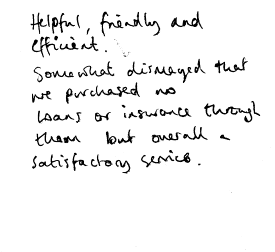 Helpful, friendly and
efficient.
Somewhat dismayed that
we purchased no
loans or insurance through
them but overall a
satisfactory service.